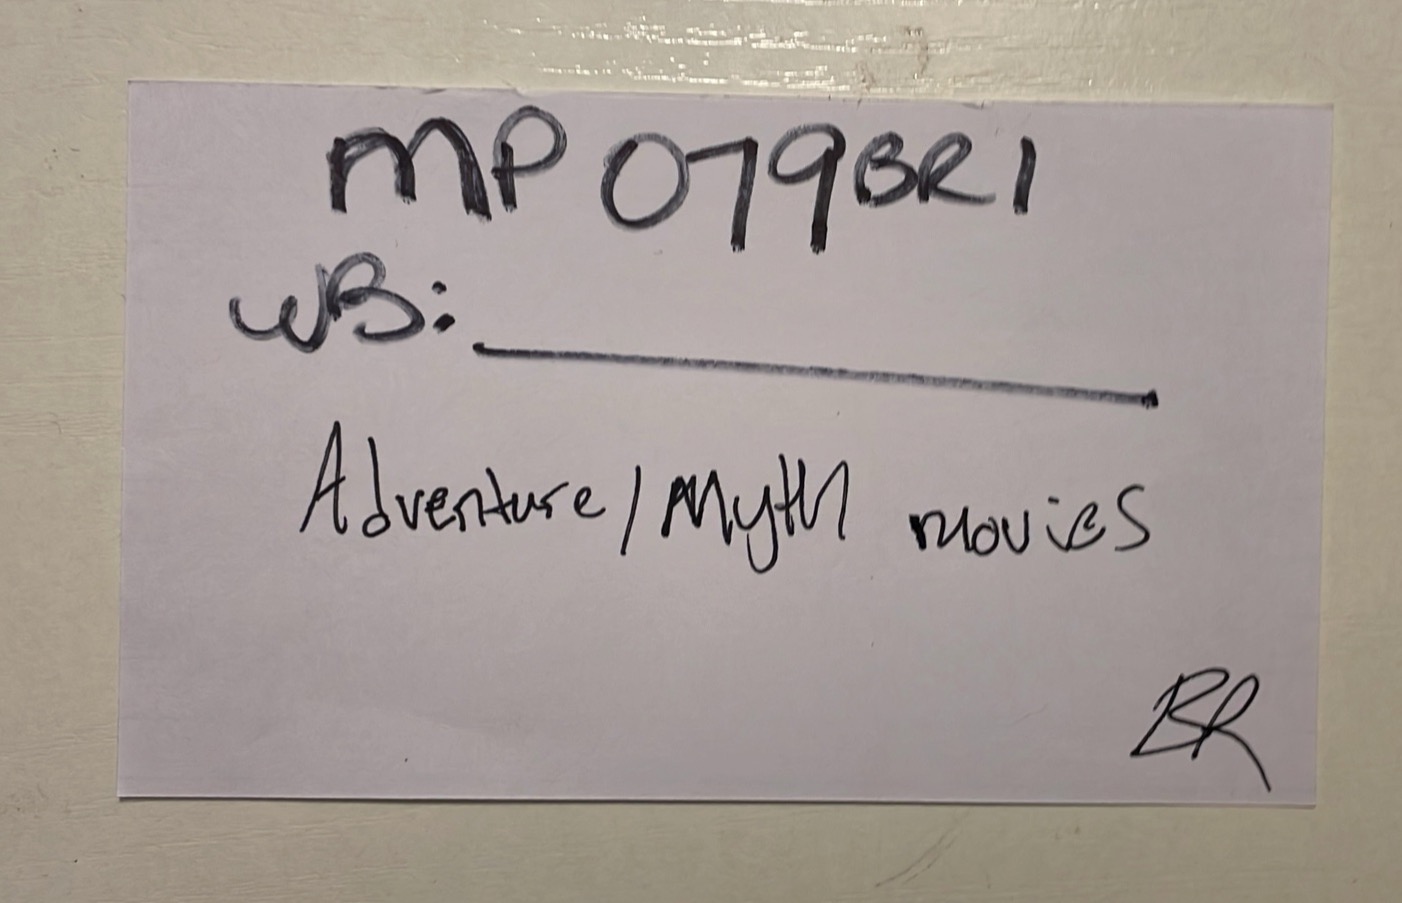 MP 079BR1
WB:
Adventure/Myth movies
BR